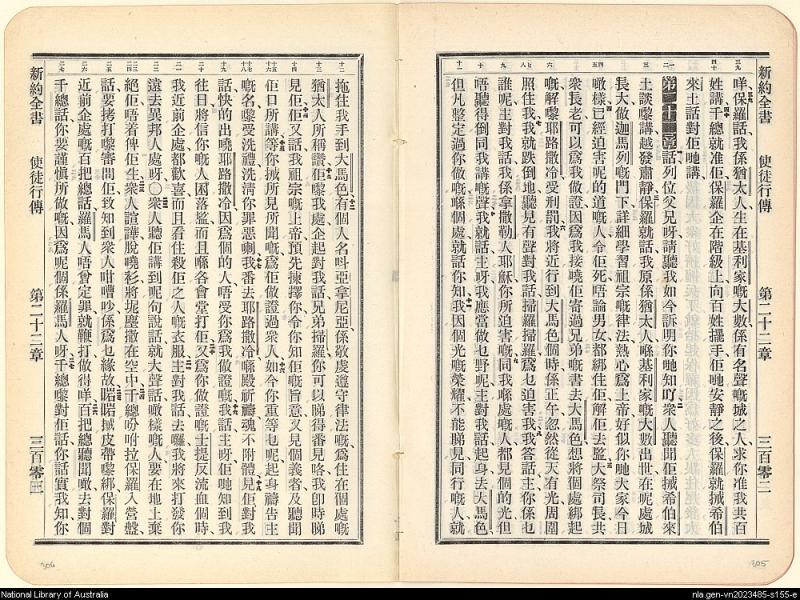 新約全書 使徒行傳 第二十二章 三百零二
咩保羅話我係猶太人生在基利家嘅大數係有名聲嘅城之人求你准我共百
姓講千總就准佢保羅企在階級上向百姓擺手佢哋安靜之後保羅就捒希伯
來土話對佢哋講
第二十二章 話列位父兄呀請聽我如今訴明你哋知吖衆人聽聞佢捒希伯來
土談嚟講越發肅靜保羅就話我原係猶太人喺基利家嘅大數出世在呢處城
長大做迦馬列嘅門下詳細學習祖宗嘅律法熱心爲上帝好似你哋大家今日
噉樣已經迫害呢的道嘅人令佢死唔論男女都綁住佢解佢去監大祭司長共
衆長老可以爲我做證因爲我接嘵佢寄過兄弟嘅書去大馬色想將個處綁起
嘅解嚟耶路撒冷受刑罰我將近行到大馬色個時係正午忽然從天有光周圍
照住我我就跌倒地聽見有聲對我話掃羅掃羅爲乜迫害我我答話主你係乜
誰呢主對我話我係拿撒勒人耶穌你所迫害嘅同我喺處嘅人都見個的光但
唔聽得倒同我講嘅聲我就話主呀我應當做乜野呢主對我話起身去大馬色
但凡整定過你做嘅喺個處就話你知我因個光嘅榮耀不能睇見同行嘅人就
拖住我手到大馬色有個人名叫亞拿尼亞係敬虔遵守律法嘅爲住在個處嘅
猶太人所稱讚佢嚟我處企起對我話兄弟掃羅你可以睇得番見咯我卽時睇
見佢佢又話我祖宗嘅上帝預先揀擇你令你知佢嘅旨意又見個義者及聽聞
佢口所講等你捒所見所聞嘅爲佢做證過衆人如今你重等乜呢起身禱告主
嘅名嚟受洗禮洗清你罪惡喇我番去耶路撒冷喺殿祈禱魂不附體見佢對我
話快的出嘵耶路撒冷因爲個的人唔受你爲我做證嘅我話主呀佢哋知到我
往日將信你嘅人困落監而且喺各會堂打佢又爲你做證嘅士提反流血個時
我近前企處都歡喜而且看住殺佢之人嘅衣服主對我話去囉我將來打發你
遠去異邦人處呀〇衆人聽佢講到呢句說話就大聲話噉樣嘅人要在地上棄
絕佢唔着俾佢生衆人諠譁脫嘵衫將坭塵撒在空中千總吩咐拉保羅入營盤
話要拷打嚟審問佢致知到衆人咁嘈吵係爲乜緣故啱啱捒皮帶嚟綁保羅對
近前企處嘅百把總話羅馬人唔曾定罪就鞭打做得咩百把總聽聞噉去對個
千總話你要謹愼所做嘅因爲呢個係羅馬人呀千總嚟對佢話你話實我知你
新約全書 使徒行傳 第二十二章 三百零三
306
305
National Library of Australia
nla.gen-vn2023485-s155-e